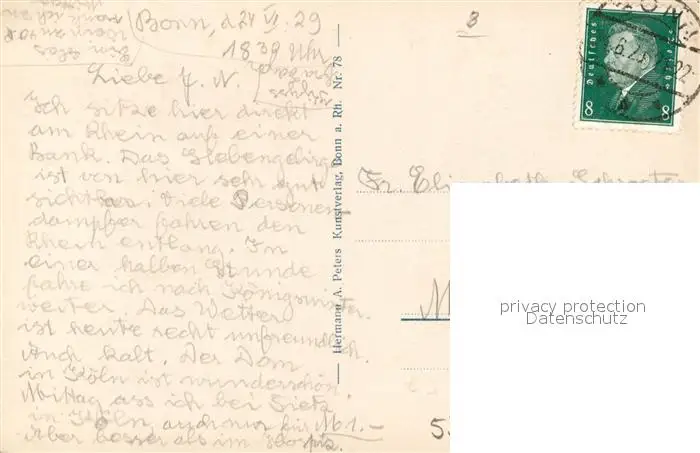 Bonn, d. 24. VI. 29
18 39 Uhr
Liebe F. N.
Ich sitze hier direkt
am Rhein auf einer
Bank. Das Siebengebirge
ist von hier sehr gut
sichtbar. Viele Personen-
dampfer fahren den
Rhein entlang. In
einer halben Stunde
fahre ich nach Königswinter
weiter. Das Wetter
ist heute recht unfreundlich.
Auch kalt. Der Dom
in Köln ist wunderschön.
Mittag ass ich bei Tietz
in Köln, auch nur für M 1.-
Aber besser als im Hospiz.
Hermann A. Peters Kunstverlag, Bonn a. Rh. Nr. 78
3
Deutsches Reich
8 8
Fr. Elisabeth
M
5
privacy protection
Datenschutz